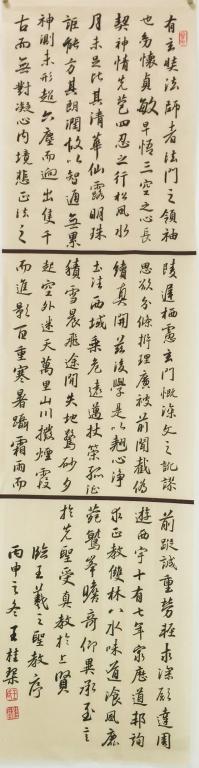 有玄奘法師者法門之領袖
也幼懷貞敏早悟三空之心長
契神情先苞四忍之行松風水
月未足比其清華仙露明珠
詎能方其朗潤故以智通無累
神測未形超六塵而迥出隻千
古而無對凝心內境悲正法之
陵遲栖慮玄門慨深文之訛謬
思欲分條析理廣彼前聞截偽
續真開茲後學是以翹心淨
土法西域乘危遠邁杖策孤征
積雪晨飛途閒失地驚砂夕
起空外迷天萬里山川撥煙霞
而進影百重寒暑躡霜雨而
前蹤誠重勞輕求深願達周
遊西宇十有七年窮歷道邦詢
求正教雙林八水味道飡風鹿
菀鷲峯瞻奇仰異承至言
於先聖受真教於上賢
臨王羲之聖教序
丙申之冬王桂